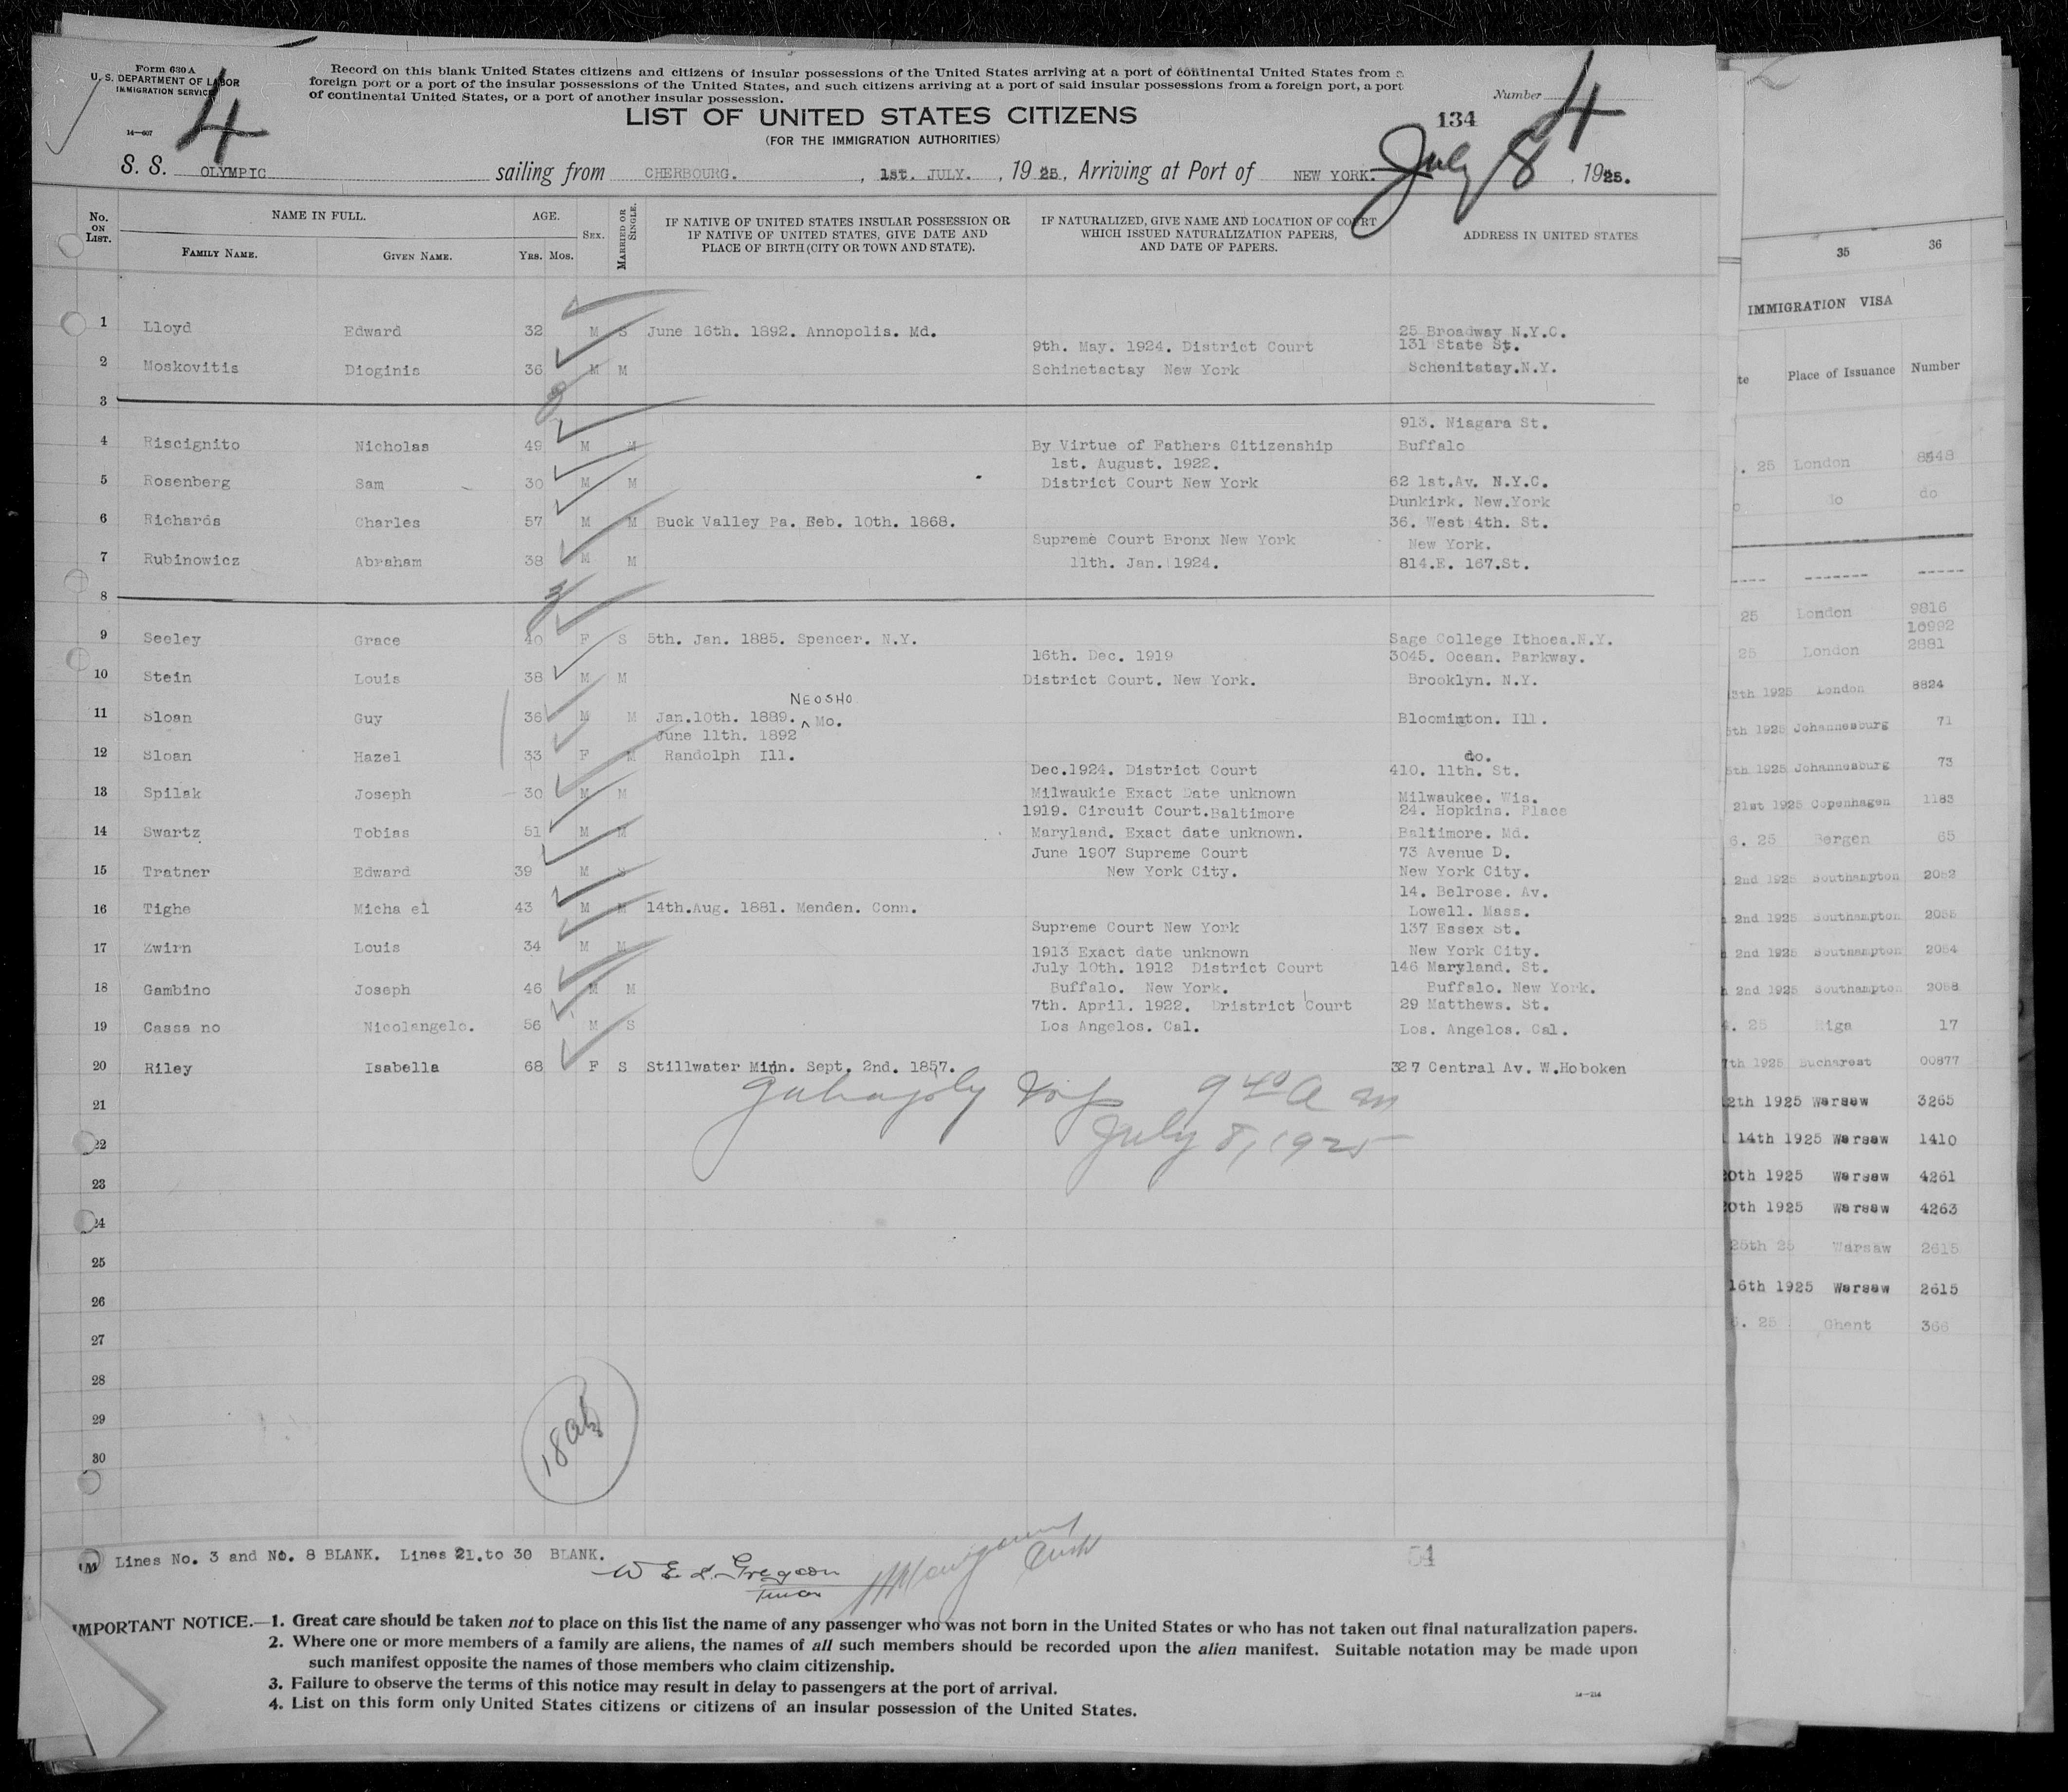 Form 630 A
U. S. DEPARTMENT OF LABOR
IMMIGRATION SERVICE
14—607
4
Record on this blank United States citizens and citizens of insular possessions of the United States arriving at a port of continental United States from a
foreign port or a port of the insular possessions of the United States, and such citizens arriving at a port of said insular possessions from a foreign port, a port
of continental United States, or a port of another insular possession.
Number 4
LIST OF UNITED STATES CITIZENS
134
(FOR THE IMMIGRATION AUTHORITIES)
S. S. OLYMPIC sailing from CHERBOURG. , 1st. JULY. , 1925, Arriving at Port of NEW YORK. July 8 , 1925.
No. ON LIST.
NAME IN FULL.
FAMILY NAME. GIVEN NAME.
AGE.
YRS. MOS.
SEX.
MARRIED OR SINGLE.
IF NATIVE OF UNITED STATES INSULAR POSSESSION OR
IF NATIVE OF UNITED STATES, GIVE DATE AND
PLACE OF BIRTH (CITY OR TOWN AND STATE).
IF NATURALIZED, GIVE NAME AND LOCATION OF COURT
WHICH ISSUED NATURALIZATION PAPERS,
AND DATE OF PAPERS.
ADDRESS IN UNITED STATES
1 Lloyd Edward 32 M S June 16th. 1892. Annopolis. Md. 25 Broadway N.Y.C.
9th. May. 1924. District Court 131 State St.
2 Moskovitis Dioginis 36 M M Schinetactay New York Schenitatay.N.Y.
3
913. Niagara St.
4 Riscignito Nicholas 49 M M By Virtue of Fathers Citizenship Buffalo
1st. August. 1922.
5 Rosenberg Sam 30 M M District Court New York 62 1st.Av. N.Y.C.
Dunkirk. New.York
6 Richards Charles 57 M M Buck Valley Pa. Feb. 10th. 1868. 36. West 4th. St.
Supreme Court Bronx New York New York.
7 Rubinowicz Abraham 38 M M 11th. Jan. 1924. 814.E. 167.St.
8
9 Seeley Grace 40 F S 5th. Jan. 1885. Spencer. N.Y. Sage College Ithoca.N.Y.
16th. Dec. 1919 3045. Ocean. Parkway.
10 Stein Louis 38 M M District Court. New York. Brooklyn. N.Y.
NEOSHO
11 Sloan Guy 36 M M Jan.10th. 1889. ^ Mo. Bloomington. Ill.
June 11th. 1892
12 Sloan Hazel 33 F M Randolph Ill. do.
Dec.1924. District Court 410. 11th. St.
13 Spilak Joseph 30 M M Milwaukie Exact Date unknown Milwaukee. Wis.
1919. Circuit Court.Baltimore 24. Hopkins. Place
14 Swartz Tobias 51 M M Maryland. Exact date unknown. Baltimore. Md.
June 1907 Supreme Court 73 Avenue D.
15 Tratner Edward 39 M S New York City. New York City.
14. Belrose. Av.
16 Tighe Micha el 43 M M 14th.Aug. 1881. Menden. Conn. Lowell. Mass.
Supreme Court New York 137 Essex St.
17 Zwirn Louis 34 M M 1913 Exact date unknown New York City.
July 10th. 1912 District Court 146 Maryland. St.
18 Gambino Joseph 46 M M Buffalo. New York. Buffalo. New York.
7th. April. 1922. Dristrict Court 29 Matthews. St.
19 Cassa no Nicolangelo. 56 M S Los Angelos. Cal. Los. Angelos. Cal.
20 Riley Isabella 68 F S Stillwater Minn. Sept. 2nd. 1857. 327 Central Av. W.Hoboken
21
9 40 A m
22
July 8, 1925
23
24
25
26
27
28
29
30
18
Lines No. 3 and No. 8 BLANK. Lines 21.to 30 BLANK.
54
IMPORTANT NOTICE.—1. Great care should be taken not to place on this list the name of any passenger who was not born in the United States or who has not taken out final naturalization papers.
2. Where one or more members of a family are aliens, the names of all such members should be recorded upon the alien manifest. Suitable notation may be made upon
such manifest opposite the names of those members who claim citizenship.
3. Failure to observe the terms of this notice may result in delay to passengers at the port of arrival.
4. List on this form only United States citizens or citizens of an insular possession of the United States.
35 36
IMMIGRATION VISA
te Place of Issuance Number
. 25 London 8548
do do
25 London 9816
10992
25 London 2881
5th 1925 London 8824
5th 1925 Johannesburg 71
5th 1925 Johannesburg 73
21st 1925 Copenhagen 1183
6. 25 Bergen 65
2nd 1925 Southampton 2052
2nd 1925 Southampton 2055
2nd 1925 Southampton 2054
2nd 1925 Southampton 2058
. 25 Riga 17
7th 1925 Bucharest 00877
2th 1925 Warsaw 3265
14th 1925 Warsaw 1410
0th 1925 Warsaw 4261
0th 1925 Warsaw 4263
25th 25 Warsaw 2615
16th 1925 Warsaw 2615
. 25 Ghent 366